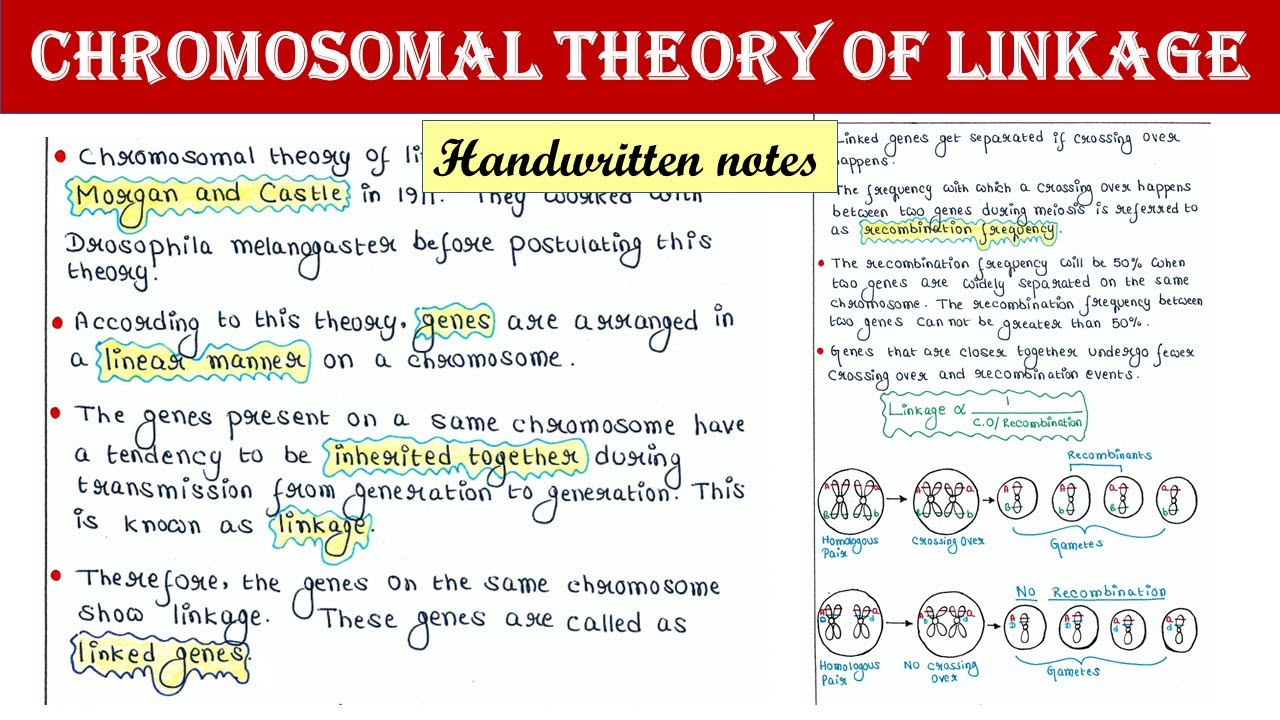 CHROMOSOMAL THEORY OF LINKAGE
Handwritten notes
Chromosomal theory of
Morgan and Castle in 1911. They worked with
Drosophila melanggaster before postulating this
theory.
According to this theory, genes are arranged in
a linear manner on a chromosome.
The genes present on a same chromosome have
a tendency to be inherited together during
transmission from generation to generation. This
is known as linkage.
Therefore, the genes on the same chromosome
show linkage. These genes are called as
linked genes.
Linked genes get separated if crossing over
happens.
The frequency with which a crossing over happens
between two genes during meiosis is referred to
as recombination frequency.
The recombination frequency will be 50% when
two genes are widely separated on the same
chromosome. The recombination frequency between
two genes can not be greater than 50%.
Genes that are closer together undergo fewer
crossing over and recombination events.
Linkage ∝ 1
C.O/Recombination
Recombinants
A a A a A A a a
B b B b B b B b
Homologous
Pair
Crossing Over
Gametes
No Recombination
A a A a A A a a
D d D d D D d d
Homologous
Pair
No Crossing
Over
Gametes